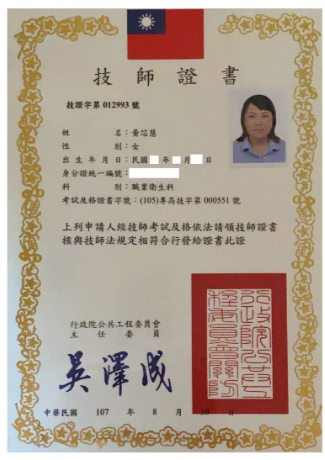 技師證書
技證字第 012993 號
姓名：黃芯慧
性別：女
出生年月日：民國 年 月 日
身分證統一編號：
科別：職業衛生科
考試及格證書字號：(105)專高技字第 000551 號
上列申請人經技師考試及格依法請領技師證書
核與技師法規定相符合行發給證書此證
行政院公共工程委員會
主任委員
吳澤成
行政院公共工程委員會關防
中華民國 107 年 8 月 日